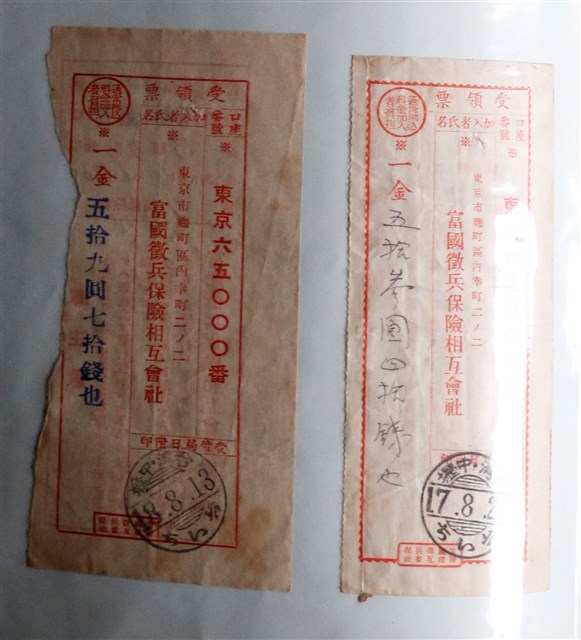 受領票
口座番號
※東京六五〇〇〇番
加入者氏名
※
東京市麹町區内幸町二ノ二
富國徵兵保險相互會社
料金加入
者負担
※一金五拾九圓七拾錢也
受付局日附印
8.13
受領票
口座番號
※
加入者氏名
※
東京市麹町區内幸町二ノ二
富國徵兵保險相互會社
料金加入
者負担
※一金五拾参圓四拾錢也
17.8.2